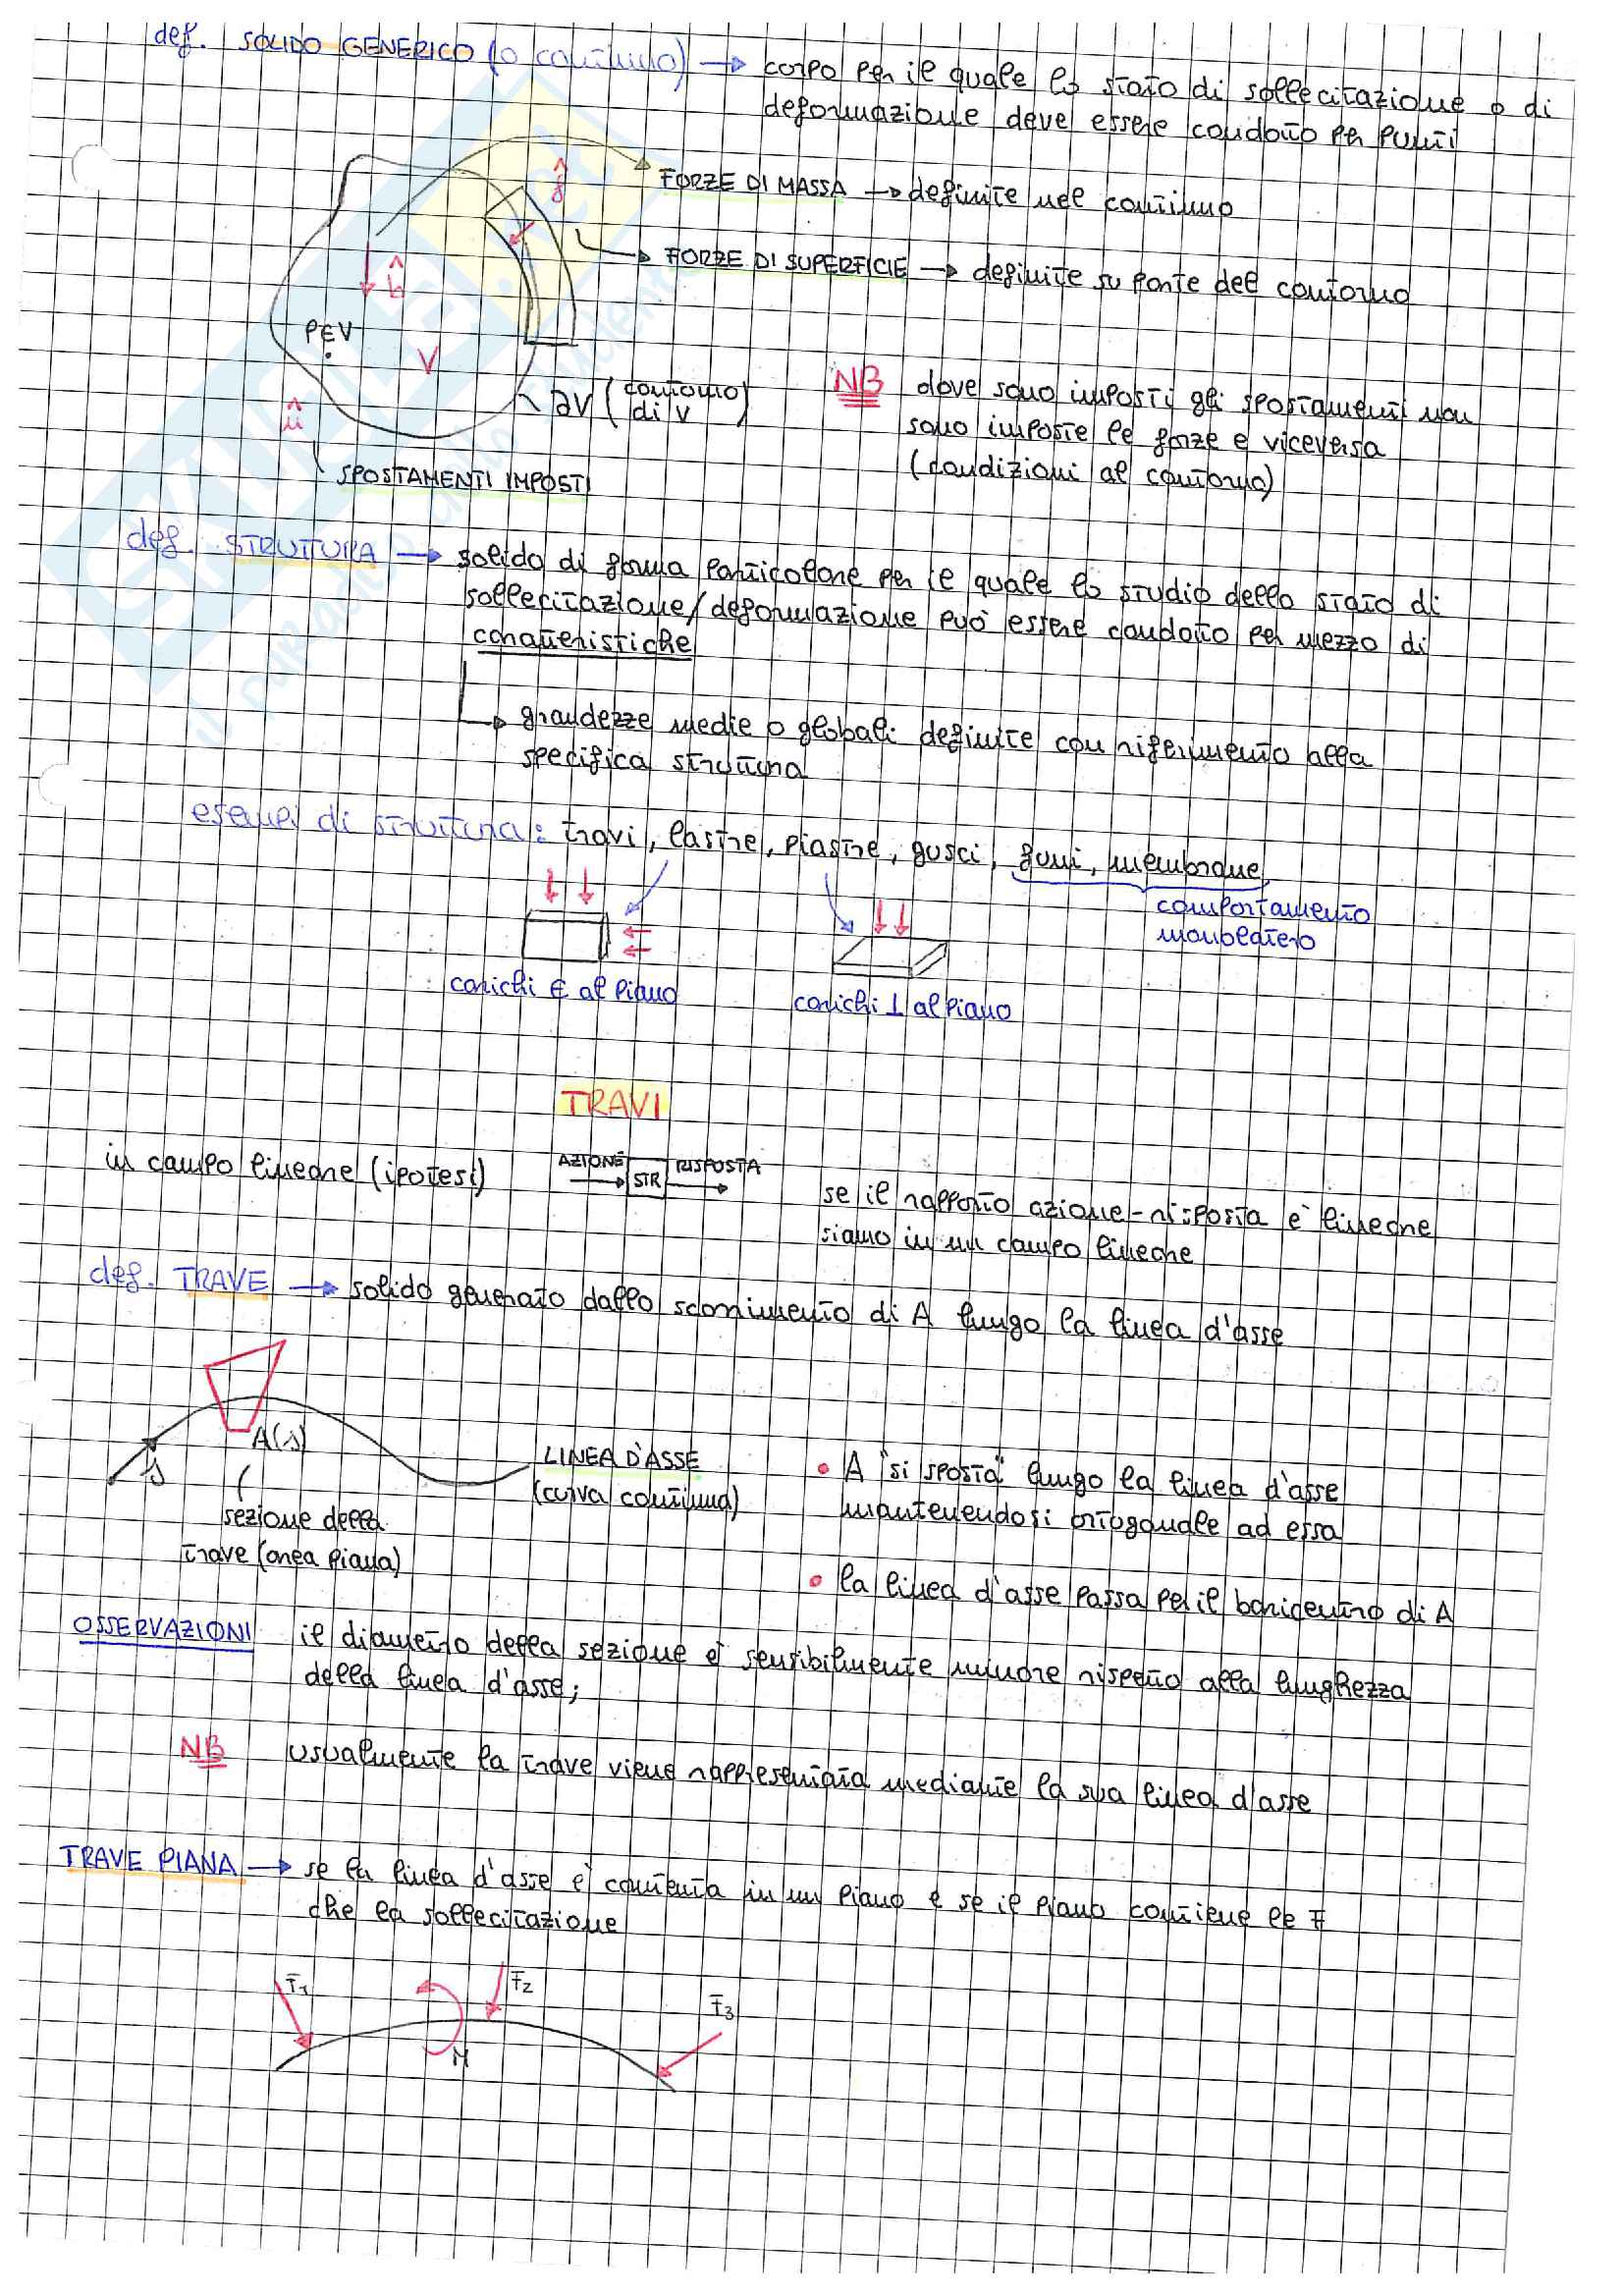 def. SOLIDO GENERICO (o continuo) → corpo per il quale lo stato di sollecitazione o di
deformazione deve essere condotto per punti
f̂
FORZE DI MASSA → definite nel continuo
FORZE DI SUPERFICIE → definite su parte del contorno
b̂
P∈V
V
∂V (contorno
di V)
û
SPOSTAMENTI IMPOSTI
NB dove sono imposti gli spostamenti non
sono imposte le forze e viceversa
(condizioni al contorno)
def. STRUTTURA → solido di forma particolare per il quale lo studio dello stato di
sollecitazione/deformazione può essere condotto per mezzo di
caratteristiche
→ grandezze medie o globali definite con riferimento alla
specifica struttura
esempi di struttura: travi, lastre, piastre, gusci, funi, membrane
comportamento
monolatero
carichi ∈ al piano
carichi ⊥ al piano
TRAVI
in campo lineare (ipotesi)
AZIONE → STR RISPOSTA →
se il rapporto azione-risposta è lineare
siamo in un campo lineare
def. TRAVE → solido generato dallo scorrimento di A lungo la linea d'asse
A(s)
s
sezione della
trave (area piana)
LINEA D'ASSE
(curva continua)
• A "si sposta" lungo la linea d'asse
mantenendosi ortogonale ad essa
• la linea d'asse passa per il baricentro di A
OSSERVAZIONI il diametro della sezione è sensibilmente minore rispetto alla lunghezza
della linea d'asse;
NB usualmente la trave viene rappresentata mediante la sua linea d'asse
TRAVE PIANA → se la linea d'asse è contenuta in un piano e se il piano contiene le F
che la sollecitazione
F1
F2
F3
M